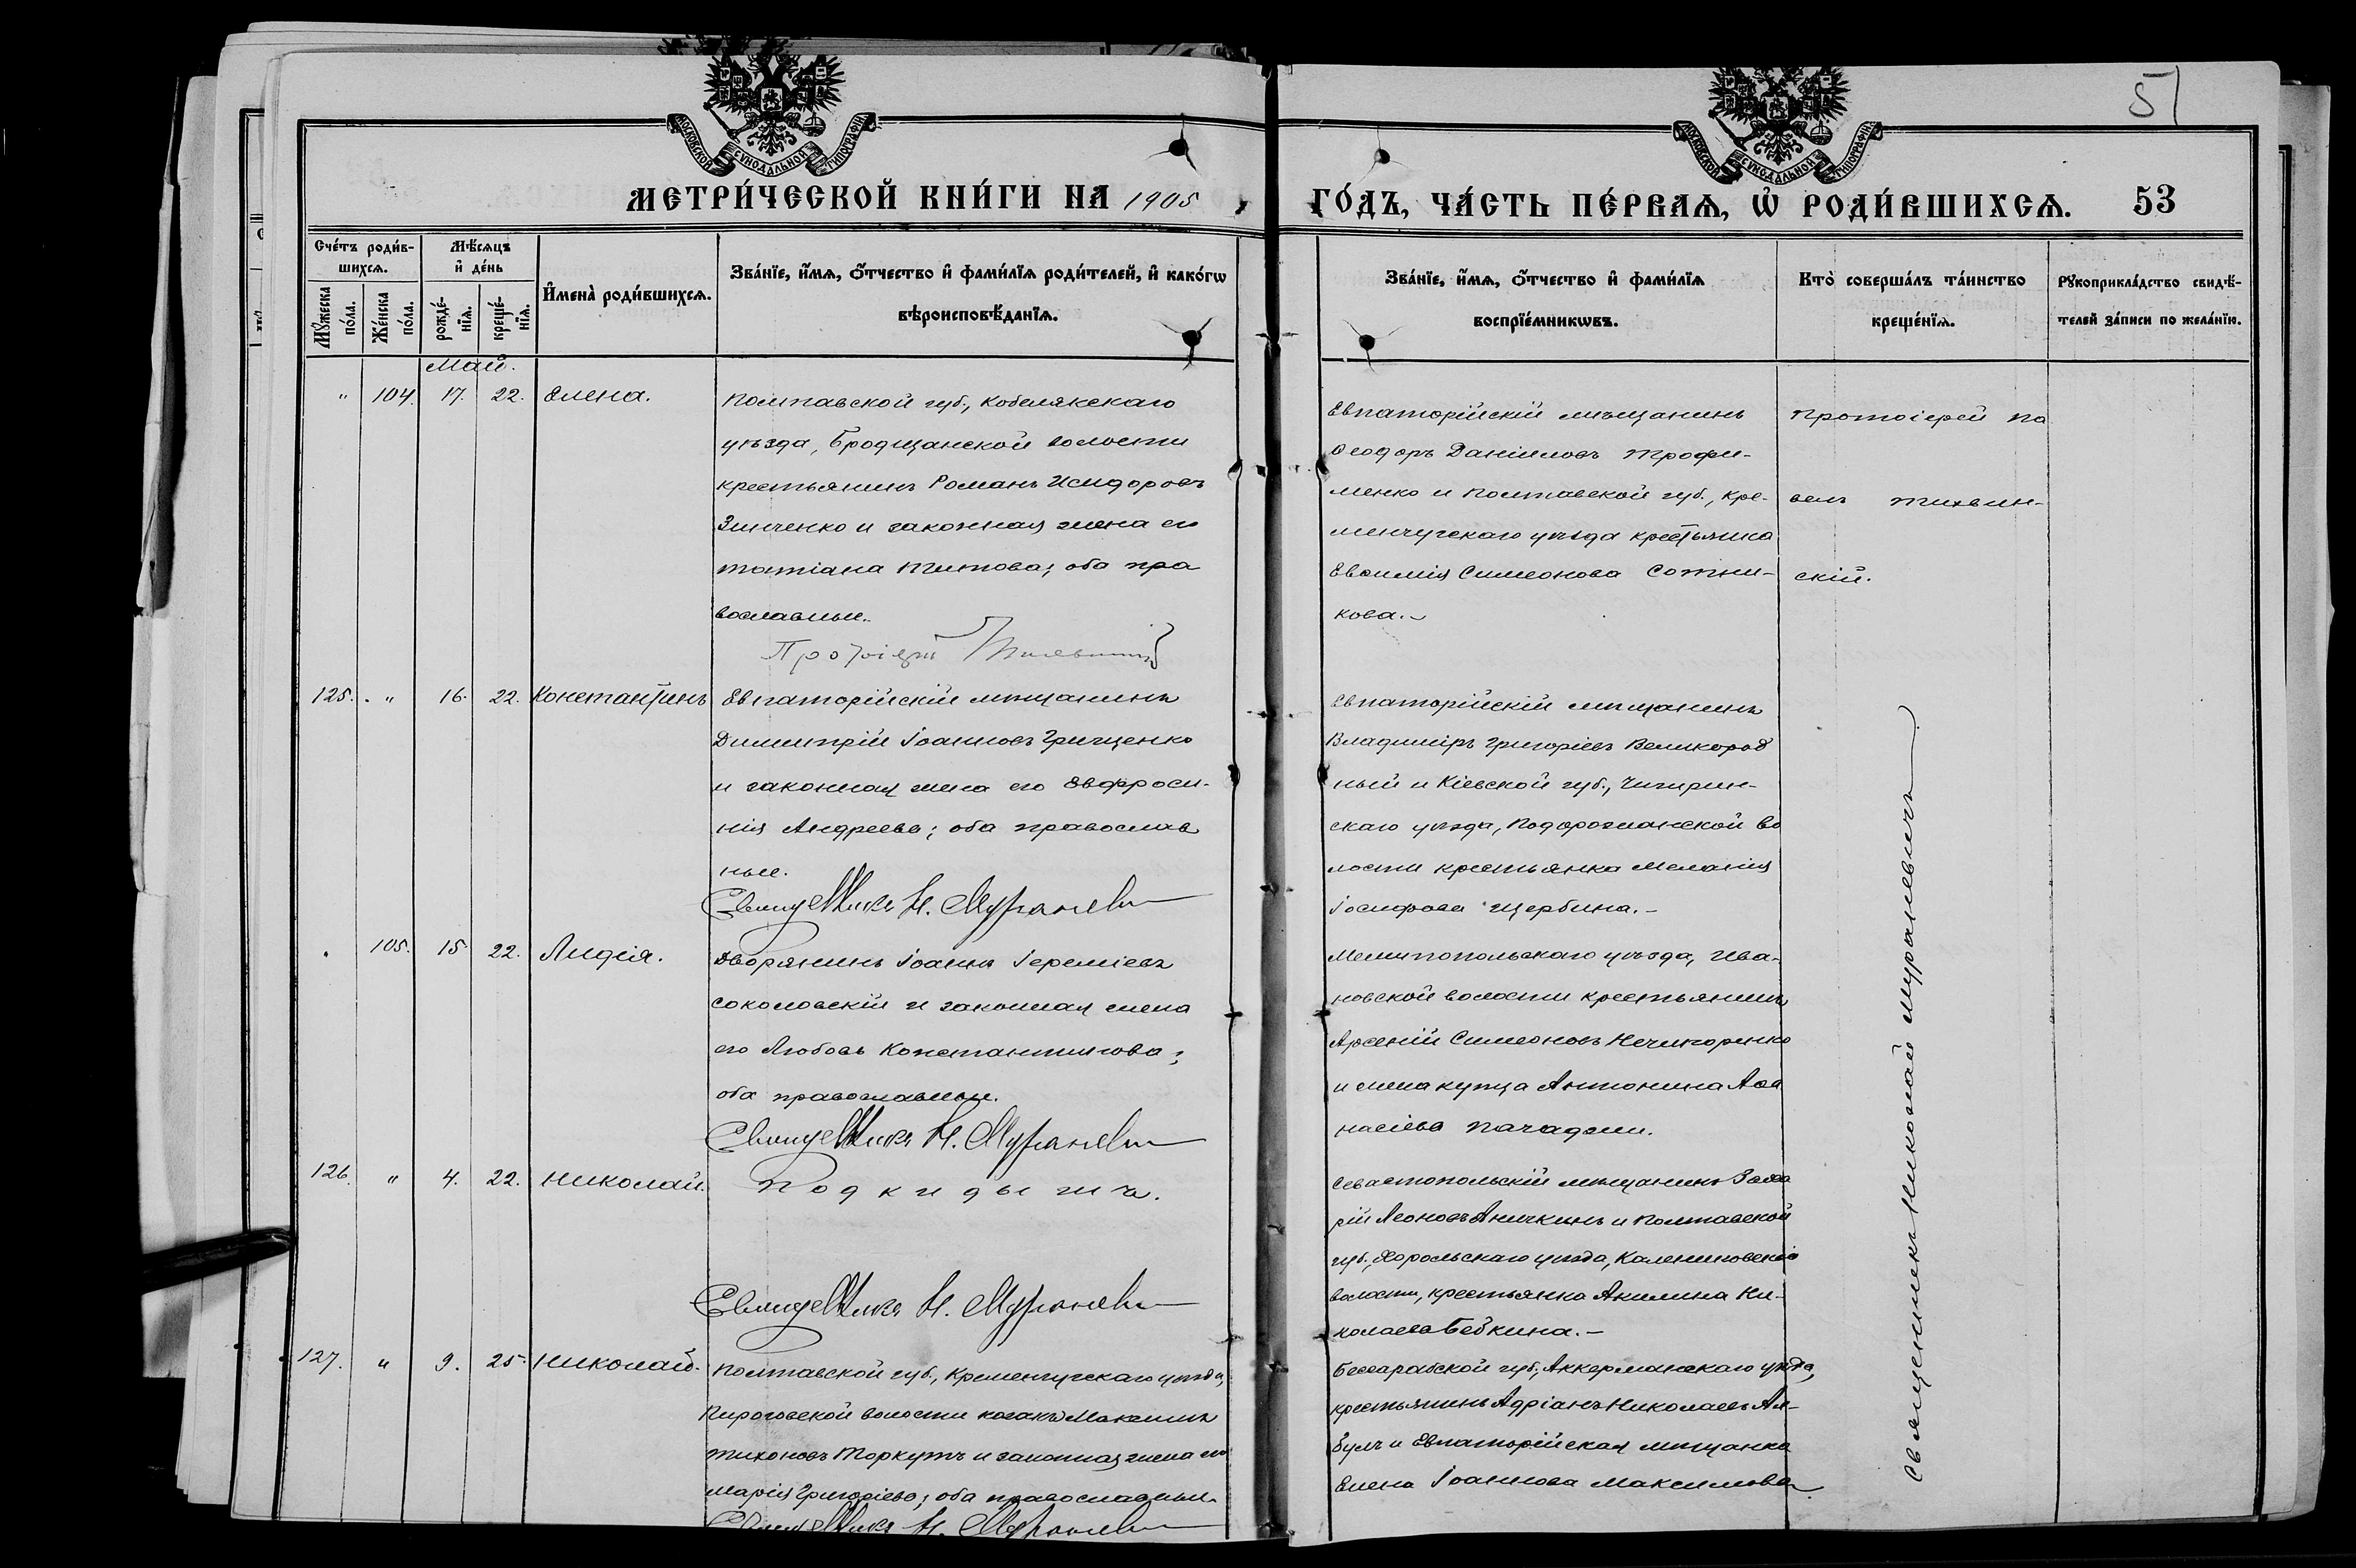 51
МОСКОВСКОЙ СѴНОДАЛЬНОЙ ТИПОГРАФІИ
МОСКОВСКОЙ СѴНОДАЛЬНОЙ ТИПОГРАФІИ
МЕТРИ́ЧЕСКОЙ КНИ́ГИ НА 1905 ГО́ДЪ, ЧА́СТЬ ПЕ́РВАѦ, Ѡ҆ РОДИ́ВШИХСѦ. 53
Сче́тъ роди́в-
шихсѧ.
Мꙋ́жеска по́ла.
Же́нска по́ла.
Мѣ́сѧцъ
и҆ де́нь
рожде́-
нїѧ.
креще́-
нїѧ.
И҆мена̀ роди́вшихсѧ.
Зва́нїе, и҆́мѧ, ѻ҆́тчество и҆ фами́лїѧ роди́телей, и҆ како́гѡ
вѣроисповѣ́данїѧ.
Зва́нїе, и҆́мѧ, ѻ҆́тчество и҆ фами́лїѧ
воспрїе́мникѡвъ.
Кто̀ соверша́лъ та́инство
креще́нїѧ.
Рꙋкоприкла́дство свидѣ́-
телей за́писи по жела́нїю.
Май.
" 104. 17. 22. Елена.
Полтавской губ., Кобелякскаго
уѣзда, Бродщанской волости
крестьянинъ Романъ Исидоровъ
Зинченко и законная жена его
Татіана Титова; оба пра
вославные.
Протоіерей Тихвинскій
Евпаторійскій мѣщанинъ
Ѳеодоръ Даніиловъ Трофи-
менко и Полтавской губ., Кре-
менчугскаго уѣзда крестьянка
Евѳимія Симеонова Сотни-
кова.-
Протоіерей Па
велъ Тихвин-
скій.
125. " 16. 22. Константинъ
Евпаторійскій мѣщанинъ
Димитрій Іоанновъ Грищенко
и законная жена его Евфроси-
нія Андреева; оба православ
ные.
Священникъ Н. Мураневич
Евпаторійскій мѣщанинъ
Владиміръ Григоріевъ Великород
ный и Кіевской губ., Чигирин-
скаго уѣзда, Подорожанской во
лости крестьянка Меланія
Іосифова Щербина.-
105. 15. 22. Лидія.
Дворянинъ Іоаннъ Іереміевъ
Соколовскій и законная жена
его Любовь Константинова;
оба православные.
Священникъ Н. Мураневич
Мелитопольскаго уѣзда, Ива-
новской волости крестьянинъ
Арсеній Симеоновъ Нечипоренко
и жена купца Антонина Аѳа
насіева Пачаджи.
126. " 4. 22. Николай.
Подкидышъ.
Священникъ Н. Мураневич
Севастопольскій мѣщанинъ Заха
рій Леоновъ Аничкинъ и Полтавской
губ., Хорольскаго уѣзда,
волости, крестьянка Акилина Ни-
колаева Бебкина.-
127. " 9. 25. Николай.
Полтавской губ., Кременчугскаго уѣзда,
Пироговской волости козакъ Максимъ
Тихоновъ Торкутъ и законная жена его
Марія Григоріева; оба православные.
Священникъ Н. Мураневич
Бессарабской губ., Аккерманскаго уѣзда,
крестьянинъ Адріанъ Николаевъ Ал-
булъ и Евпаторійская мѣщанка
Елена Іоаннова Максимова.
Священникъ Николай Мураневичъ.